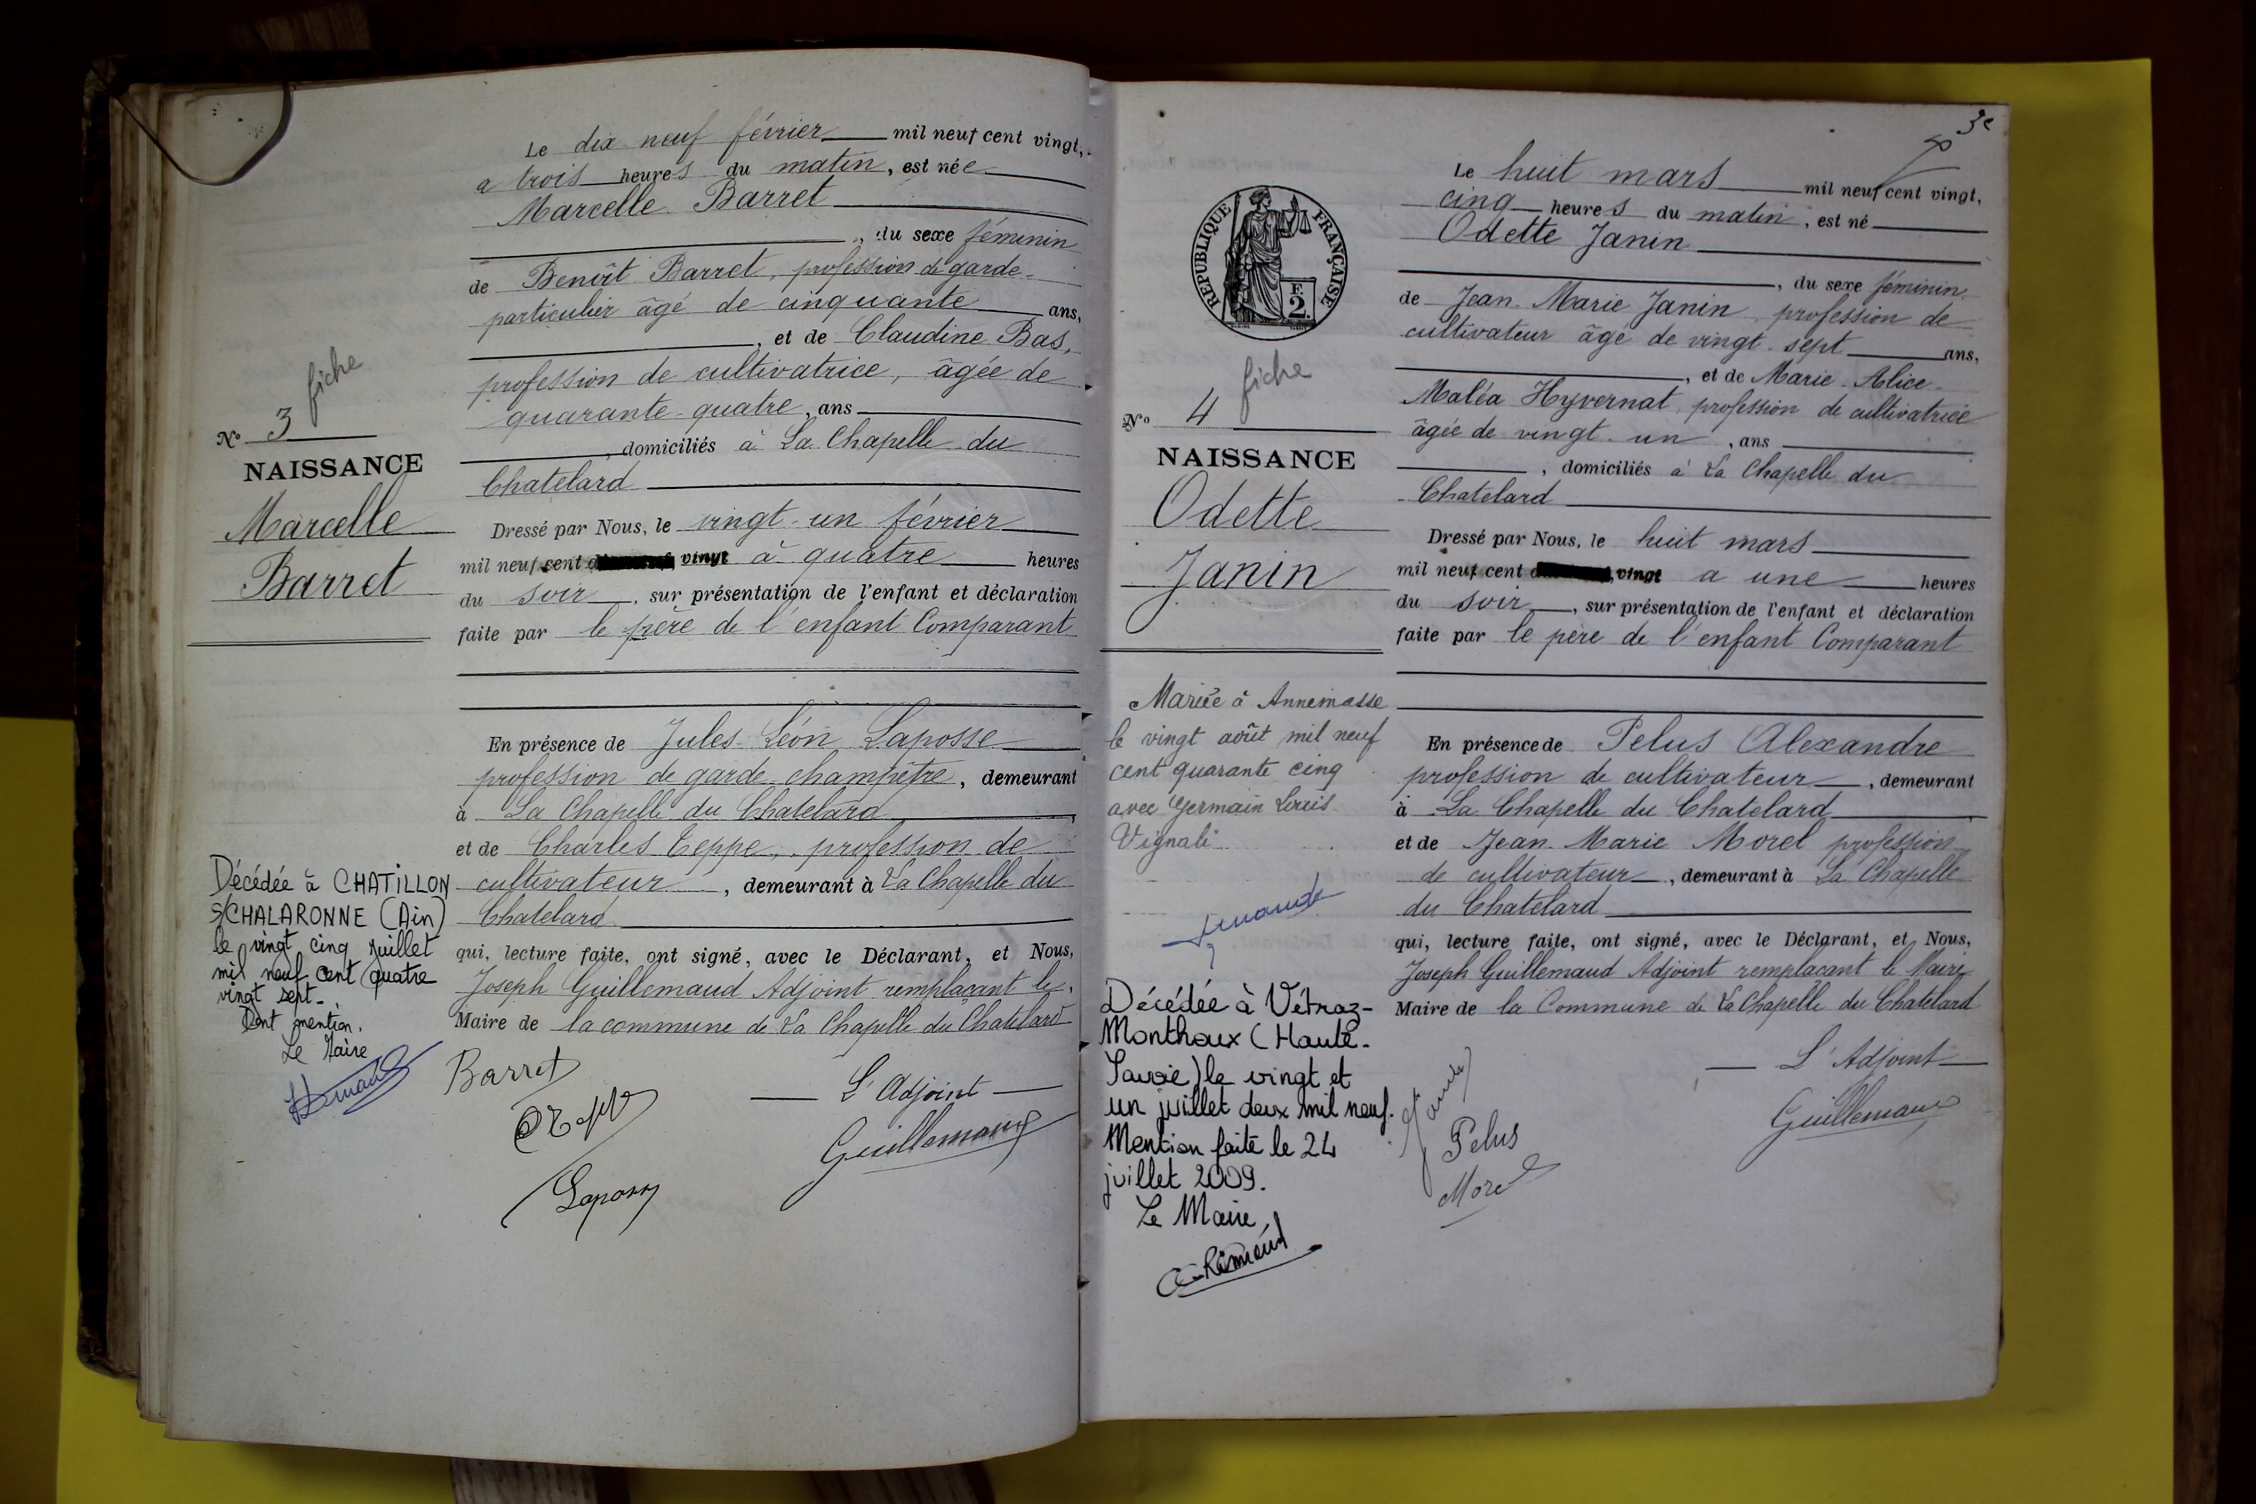 Le dix neuf février mil neuf cent vingt,
a trois heures du matin, est née
Marcelle Barret
, du sexe féminin
de Benoît Barret, profession de garde-
particulier âgé de cinquante ans,
, et de Claudine Bas,
profession de cultivatrice, âgée de
quarante-quatre, ans
, domiciliés à La Chapelle du
Chatelard
fiche
No 3
NAISSANCE
Marcelle
Barret
Dressé par Nous, le vingt-un février
mil neuf cent vingt à quatre heures
du soir, sur présentation de l'enfant et déclaration
faite par le père de l'enfant Comparant
En présence de Jules Léon Laposse
profession de garde-champêtre, demeurant
à La Chapelle du Chatelard
et de Charles Teppe, profession de
cultivateur, demeurant à La Chapelle du
Chatelard
qui, lecture faite, ont signé, avec le Déclarant, et Nous,
Joseph Guillemaud Adjoint remplaçant le
Maire de la commune de La Chapelle du Chatelard
Décédée à CHATILLON
S/CHALARONNE (Ain)
le vingt cinq juillet
mil neuf cent quatre
vingt sept.
Dont mention.
Le Maire
Barret
L'Adjoint
Guillemaud
3e
Le huit mars mil neuf cent vingt,
cinq heures du matin, est né
Odette Janin
, du sexe féminin
de Jean Marie Janin, profession de
cultivateur âgé de vingt-sept ans,
, et de Marie-Alice-
Maléa Hyvernat, profession de cultivatrice
âgée de vingt-un, ans
, domiciliés à La Chapelle du
Chatelard
REPUBLIQUE FRANÇAISE
F.
2.
fiche
No 4
NAISSANCE
Odette
Janin
Dressé par Nous, le huit mars
mil neuf cent vingt a une heures
du soir, sur présentation de l'enfant et déclaration
faite par le père de l'enfant Comparant
Mariée à Annemasse
le vingt août mil neuf
cent quarante cinq
avec Germain Louis
Vignali
En présence de Pelus Alexandre
profession de cultivateur, demeurant
à La Chapelle du Chatelard
et de Jean Marie Morel profession
de cultivateur, demeurant à La Chapelle
du Chatelard
qui, lecture faite, ont signé, avec le Déclarant, et Nous,
Joseph Guillemaud Adjoint remplacant le Maire
Maire de la Commune de La Chapelle du Chatelard
Décédée à Vétraz-
Monthoux (Haute-
Savoie) le vingt et
un juillet deux mil neuf.
Mention faite le 24
juillet 2009.
Le Maire,
L'Adjoint
Guillemaud
Pelus
Morel